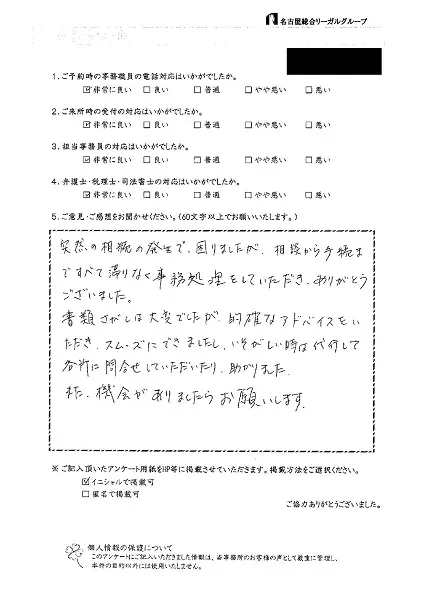 名古屋総合リーガルグループ
1. ご予約時の事務職員の電話対応はいかがでしたか。
☑非常に良い □良い □普通 □やや悪い □悪い
2. ご来所時の受付の対応はいかがでしたか。
☑非常に良い □良い □普通 □やや悪い □悪い
3. 担当事務員の対応はいかがでしたか。
☑非常に良い □良い □普通 □やや悪い □悪い
4. 弁護士・税理士・司法書士の対応はいかがでしたか。
☑非常に良い □良い □普通 □やや悪い □悪い
5. ご意見・ご感想をお聞かせください。(60文字以上でお願いいたします。)
突然の相続の発生で、困りましたが、相談から手続ま
ですべて滞りなく事務処理をしていただき、ありがとう
ございました。
書類さがしは大変でしたが、的確なアドバイスをい
ただき、スムーズにできましたし、いそがしい時は代行して
各所に問合せしていただいたり、助かりました。
また、機会がありましたらお願いします。
※ ご記入頂いたアンケート用紙をHP等に掲載させていただきます。掲載方法をご選択ください。
☑イニシャルで掲載可
□匿名で掲載可
ご協力ありがとうございました。
個人情報の保護について
このアンケートにご記入いただきました情報は、当事務所のお客様の声として厳重に管理し、
本件の目的以外には使用いたしません。